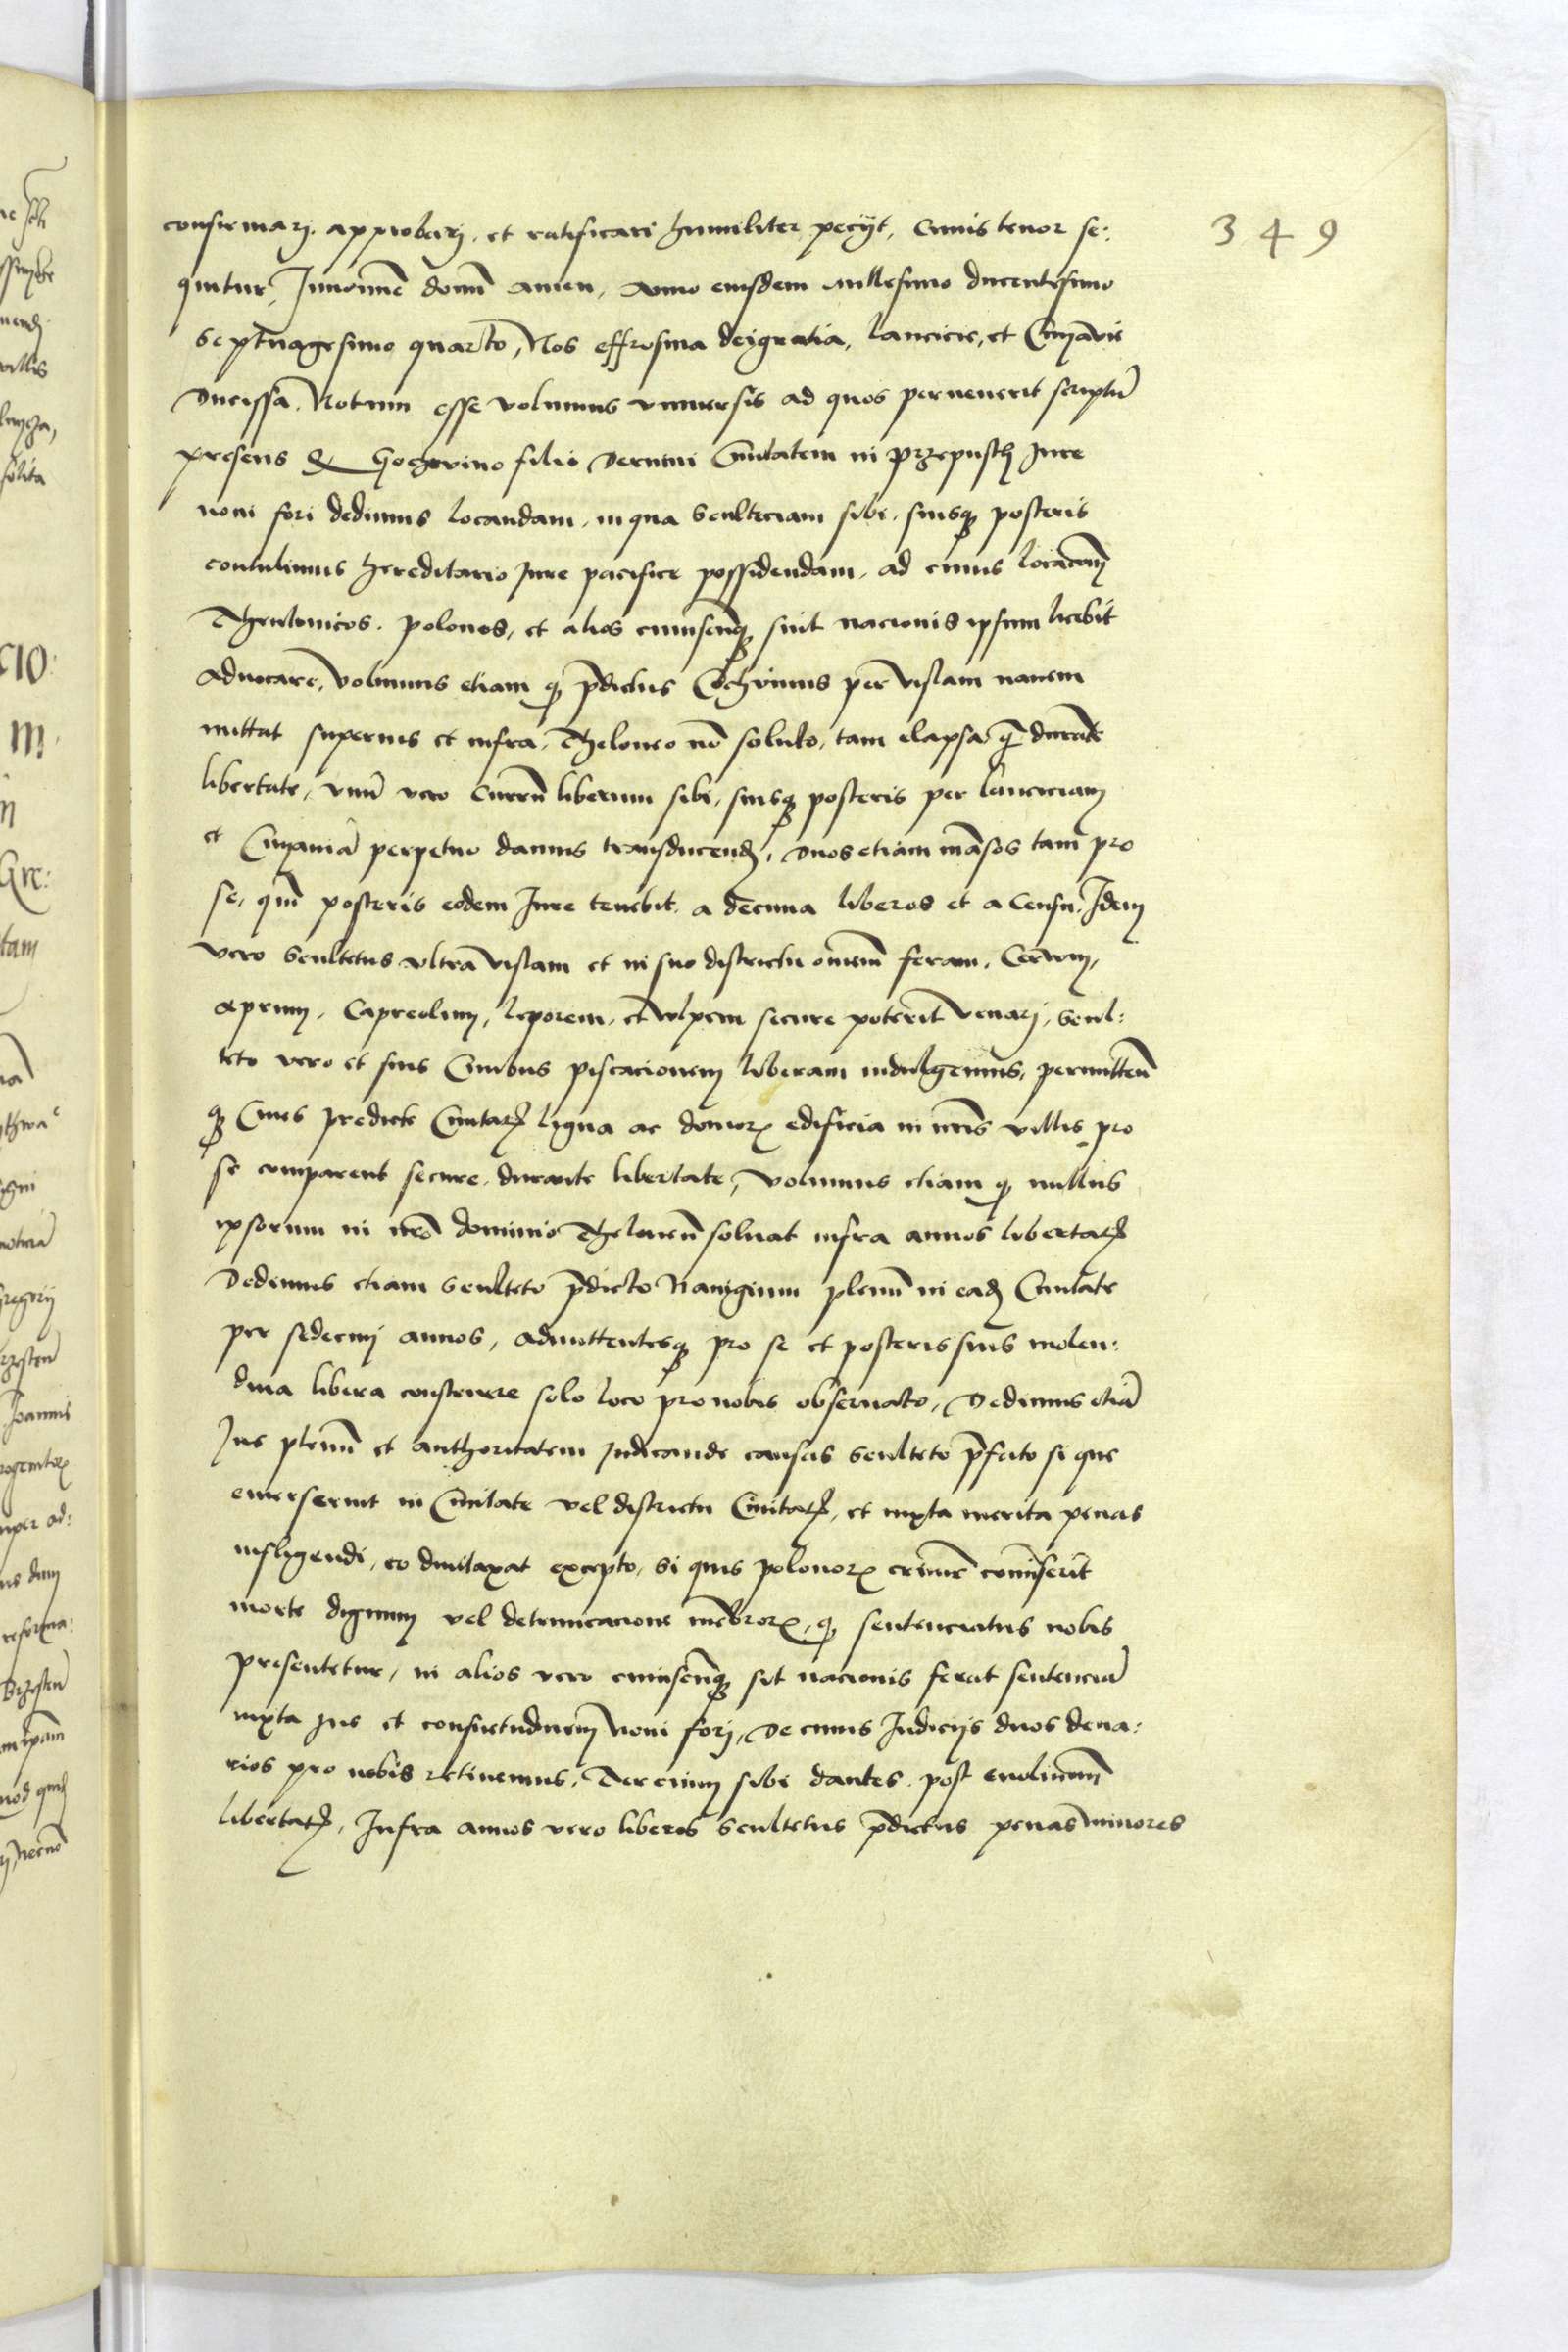 349
confirmarj. approbarj. et ratificari humiliter pecijt, Cuius tenor se:
quitur, Innomine domini amen, Anno eiusdem millesimo ducentesimo
Septuagesimo quarto, Nos effrosina deigratia, lancicie, et Cuyavie
Ducissa. Notum esse volumus vniuersis ad quos peruenerit scriptū
presens Q Gocgevino filio Deruini Ciuitatem in przepusth Jure
noui fori dedimus locandam, in qua Sculteciam sibi, suisqꝫ posteris
contulimus hereditario Jure pacifice possidendam, ad cuius locacōm
Theutonicos. polonos, et alios cuiuscūqꝫ sint nacionis ipsum licebit
aduocare, volumus etiam qꝫ p̄dictus Gochvinus per vislam nauem
mittat superius et infra, Theloneo nō soluto, tam elapsa q̄ durāte
libertate, vnū vero Currū liberum sibi, suisqꝫ posteris per lanciciam
et Cuyaniā perpetuo damus transducendꝫ, Duos etiam māsos tam pro
se, quā posteris eodem Jure tenebit, a decima liberos et a Censu. Idem
vero Scultetus vltra vislam et in suo districtu omnem feram, Cervum,
aprum, Capreolum, leporem, et vlpem secure poterit venarj, Scul:
teto vero et suis Ciuibus piscacionem liberam indulgemus, permitten̄
qꝫ Ciues predicte Ciuitatꝭ ligna ac domorꝝ edificia in nr̄is villis pro
se comparent secure, durante libertate, volumus etiam qꝫ nullus
ipsorum in nr̄o dominio Theloneū soluat infra annos libertatꝭ
Dedimus etiam Sculteto p̄dicto Nauigium plenū in eadꝫ Ciuitate
per sedecim annos, admittentesqꝫ pro se et posteris suis molen:
dina libera construere solo loco pro nobis obseruato, Dedimus etiā
Jus plenū et authoritatem Judicande causas Sculteto p̄fato si que
emerserint in Ciuitate vel districtu Ciuitatꝭ, et iuxta merita penas
infligendi, eo duntaxat excepto, Si quis polonorꝝ crimē cōmiserit
morte dignum vel detruncacione mēbrorꝝ, qꝫ sentenciatus nobis
presentetur, in alios vero cuiuscūqꝫ sit nacionis ferat sentenciā
iuxta Jus et consuetudinem noui forj, De cuius Judicijs duos dena:
rios pro nobis retinemus, Tercium sibi dantes. post euolucōm
libertatꝭ, Infra annos vero liberos Scultetus p̄dictus penas minores